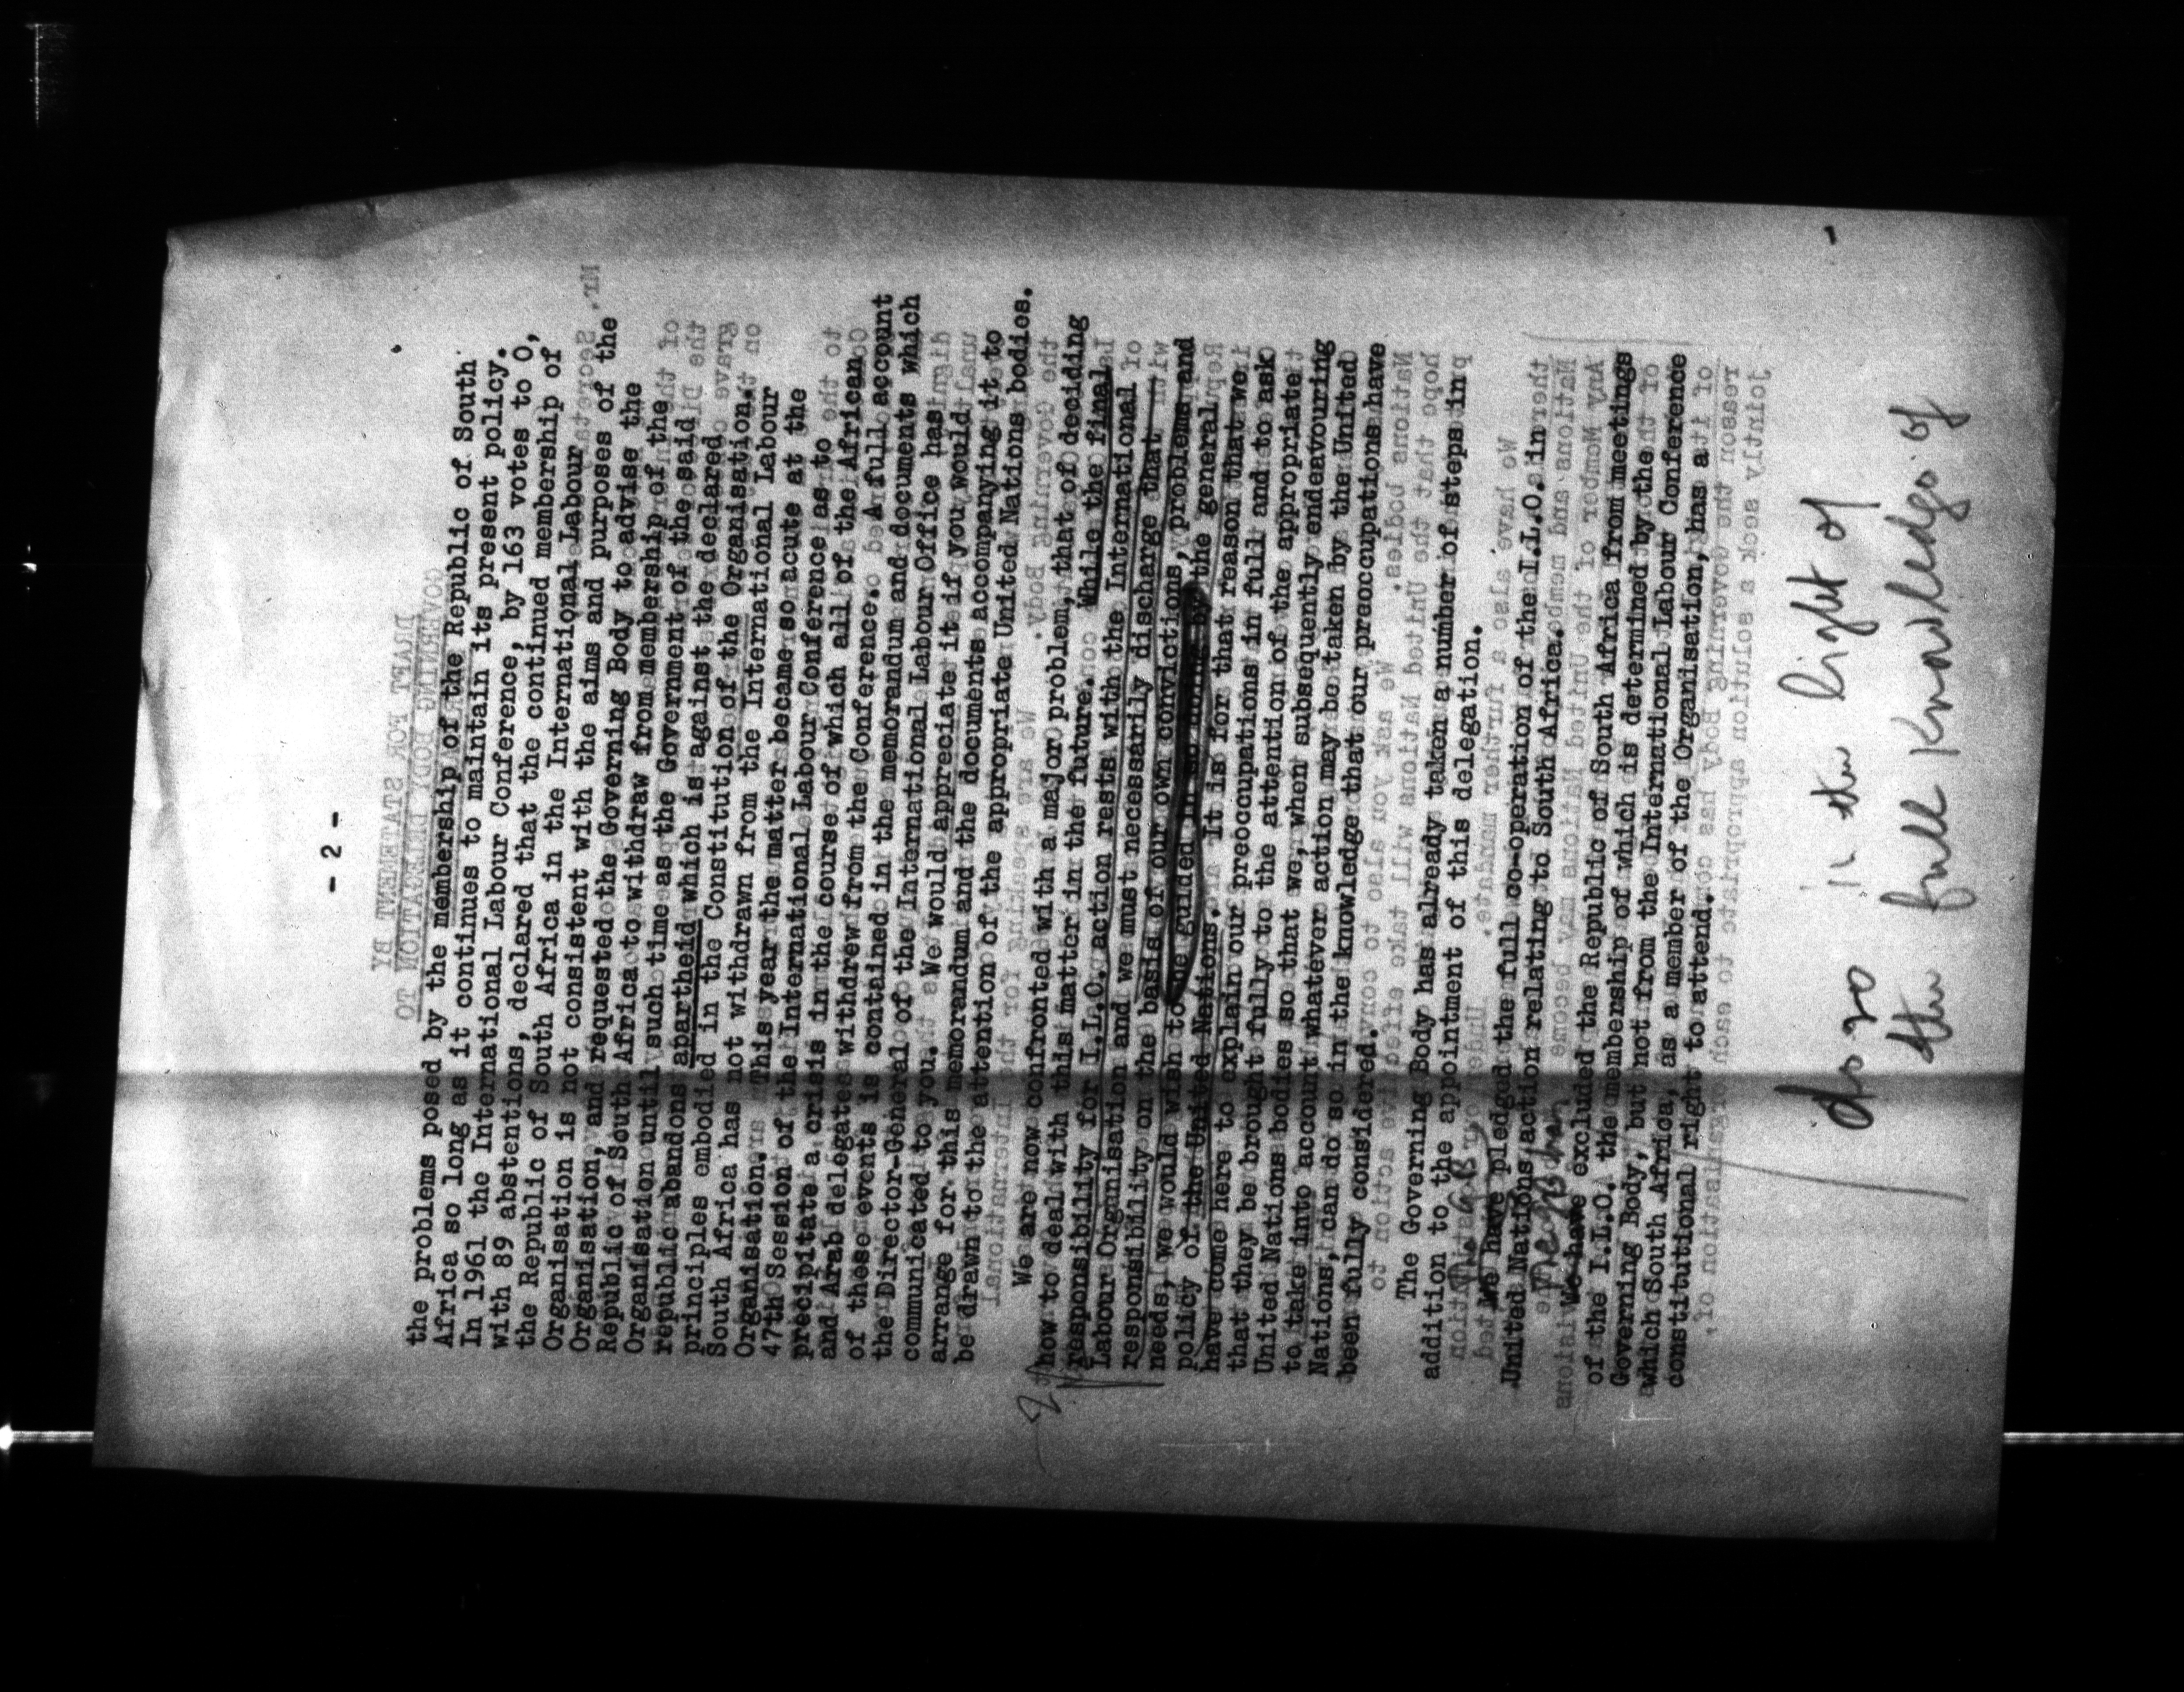 - 2 -
the problems posed by the membership of the Republic of South
Africa so long as it continues to maintain its present policy.
In 1961 the International Labour Conference, by 163 votes to 0,
with 89 abstentions, declared that the continued membership of
the Republic of South Africa in the International Labour
Organisation is not consistent with the aims and purposes of the
Organisation, and requested the Governing Body to advise the
Republic of South Africa to withdraw from membership of the
Organisation until such time as the Government of the said
republic abandons apartheid which is against the declared
principles embodied in the Constitution of the Organisation.
South Africa has not withdrawn from the International Labour
Organisation. This year the matter became so acute at the
47th Session of the International Labour Conference as to
precipitate a crisis in the course of which all of the African
and Arab delegates withdrew from the Conference. A full account
of these events is contained in the memorandum and documents which
the Director-General of the International Labour Office has
communicated to you. We would appreciate it if you would
arrange for this memorandum and the documents accompanying it to
be drawn to the attention of the appropriate United Nations bodies.
We are now confronted with a major problem, that of deciding
how to deal with this matter in the future. While the final
responsibility for I.L.O. action rests with the International
Labour Organisation and we must necessarily discharge that
responsibility on the basis of our own convictions, problems and
needs, we would wish to be guided in so doing by the general
policy of the United Nations. It is for that reason that we
have come here to explain our preoccupations in full and to ask
that they be brought fully to the attention of the appropriate
United Nations bodies so that we, when subsequently endeavouring
to take into account whatever action may be taken by the United
Nations, can do so in the knowledge that our preoccupations have
been fully considered.
The Governing Body has already taken a number of steps in
addition to the appointment of this delegation.
The G.B.
We have pledged the full co-operation of the I.L.O. in
United Nations action relating to South Africa.
The G.B.
We have excluded the Republic of South Africa from meetings
of the I.L.O. the membership of which is determined by the
Governing Body, but not from the International Labour Conference
which South Africa, as a member of the Organisation, has a
constitutional right to attend.
do so in the light of
the full knowledge of